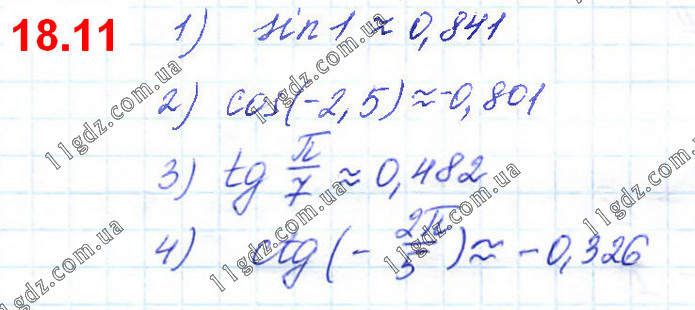 18.11
1) sin 1 ≈ 0,841
2) cos(-2,5) ≈ -0,801
3) tg π/7 ≈ 0,482
4) ctg(- 2π/5) ≈ -0,326
11gdz.com.ua
11gdz.com.ua
11gdz.com.ua
11gdz.com.ua
11gdz.com.ua
11gdz.com.ua